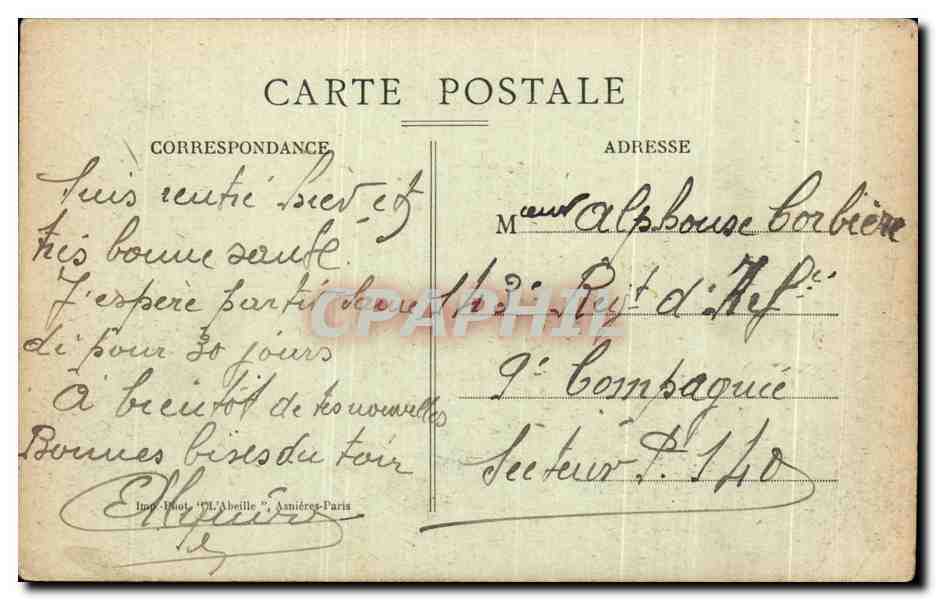 CARTE POSTALE
CORRESPONDANCE
Suis rentré hier et
très bonne santé.
J'espère partir Same
di pour 30 jours
A bientôt de tes nouvelles
Bonnes bises du
Imp.-Phot. "L'Abeille", Asnières-Paris
ADRESSE
Mœur Alphonse Corbière
Regt d'Infie
9e Compagnie
Secteur P. 140
CPAPHIL